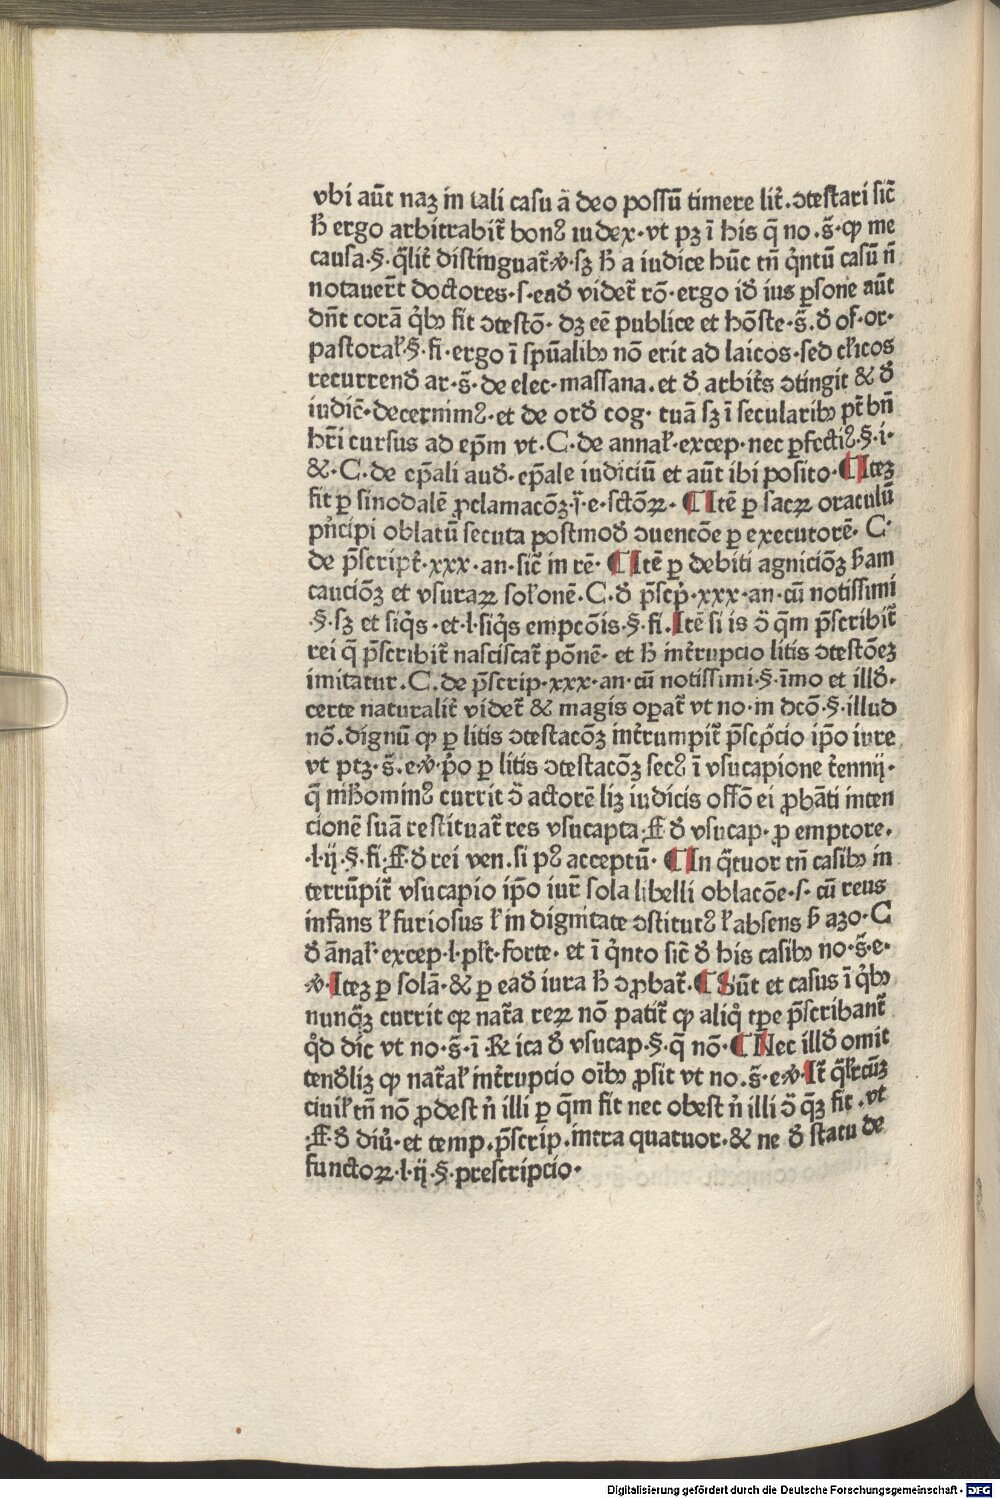 vbi aūt naʒ in tali casu ā deo possū timere lit̄. ↄtestari sic̄
h̄ ergo arbitrabit̄ bonꝰ iudex· vt pʒ ī his q̄ no .s̄· ꝙ me
causa·§· q̄lit̄ distinguat̄·℣· sʒ h̄ a iudice hūc tn̄ q̊ntū casū n̄
notauer̄t doctores·s· ead̄ videt̄ rō· ergo id̄ ius ꝑsone aūt
dn̄t corā q̊bꝫ fit ↄtestō· dʒ eē publice et hōste·s̄· d̄ of· or·
pastoral̄·§· fi· ergo ī spūalibꝫ nō erit ad laicos· sed cl̄icos
recurrend̄ ar·s̄· de elec· massana· et d̄ arbit̄s ↄtingit & d̄
iudic̄· decernimꝰ· et de ord̄ cog· tuā sʒ ī secularibꝫ pt̄ bn̄
hr̄i cursus ad ep̄m vt·C· de annal̄· excep· nec ꝑfectiꝰ·§·i·
&·C· de ep̄ali aud̄· ep̄ale iudiciū et aūt ibi posito· ¶Iteʒ
fit ꝑ sinodalē ꝓclamacōʒ·ī·e· sctōꝝ· ¶Itē ꝑ sacꝝ oraculū
pn̄cipi oblatū secuta postmod̄ ↄuencōe ꝑ executorē· C·
de p̄script̄·xxx·an· sic̄ in rē· ¶Itē ꝑ debiti agniciōʒ h̄am
cauciōʒ et vsuraꝝ sol̄onē·C· d̄ p̄scp̄·xxx·an· cū notissimi
·§· sʒ et siq̊s· et·l· siq̊s empcōis·§· fi. Itē si is ↄ̄ q̄m p̄scribit̄
rei q̄ p̄scribit̄ nasciscat̄ pōnē· et h̄ int̄rupcio litis ↄtestōeʒ
imitatur. C. de p̄scrip·xxx·an· cū notissimi·§· īmo et illd̄·
certe naturalit̄ videt̄ & magis oꝑat̄ vt no· in dcō·§· illud
nō. dignū ꝙ ꝑ litis ↄtestacōʒ int̄rumpit̄ p̄scp̄cio ip̄o iure
vt ptʒ·s̄·e·℣· p̊o ꝑ litis ↄtestacōʒ secꝰ ī vsucapione t̄ennij·
q̄ nih̄ominꝰ currit ↄ̄ actorē liʒ iudicis offō ei ꝓbāti inten
cionē suā restituat̄ res vsucapta·ff· d̄ vsucap· ꝓ emptore·
·l·ij·§· fi·ff· d̄ rei ven. si pꝰ acceptū· ¶In q̄tuor tn̄ casibꝫ in
terrūpit̄ vsucapio ip̄o iur̄ sola libelli oblacōe·s· cū reus
infans l̄ furiosus l̄ in dignitate ↄstitutꝰ l̄ absens h̄ azo· C
d̄ ānal̄· excep·l· pl̄t· forte· et ī q̊nto sic̄ d̄ his casibꝫ no·s̄·e·
℣· Iteʒ ꝑ solā· & ꝑ ead̄ iura h̄ ↄꝓbat̄. ¶Sūt et casus ī q̊bꝫ
nunq̄ʒ currit qꝛ nat̄a reꝝ nō patit̄ ꝙ aliq̊ tꝑe p̄scribant̄
q̊d dic̄ vt no·s̄·ī· Rͨ ica d̄ vsucap·§· q̄ nō· ¶Nec illd̄ omit
tend̄ liʒ ꝙ nat̄al̄ int̄rupcio oībꝫ ꝓsit vt no.s̄·e·℣· It̄ q̄l̄rcūʒ
ciuil̄ tn̄ nō ꝓdest n̄ illi ꝑ q̄m fit nec obest n̄ illi ↄ̄ q̄ʒ fit . vt
ff· d̄ diū· et temp. p̄scrip. intra quatuor· & ne d̄ statu de
functoꝝ·l·ij·§· prescripcio·
Digitalisierung gefördert durch die Deutsche Forschungsgemeinschaft · DFG